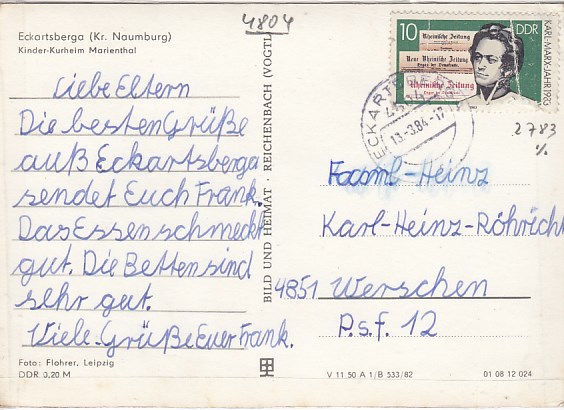 4804
Eckartsberga (Kr. Naumburg)
Kinder-Kurheim Marienthal
Liebe Eltern
Die besten Grüße
auß Eckartsberga
sendet Euch Frank.
Das Essen schmeckt
gut. Die Betten sind
sehr gut.
Viele Grüße Euer Frank.
Foto: Flohrer, Leipzig
DDR 0,20 M
BILD UND HEIMAT · REICHENBACH (VOGTL
10
DDR
KARL-MARX-JAHR 1983
Rheinische Zeitung
Neue Rheinische Zeitung
Organ der Demokratie.
Rheinische Zeitung
ECKARTSBERGA
13.-3.84-17
2783
Faml-Heinz
Karl-Heinz-Röhricht
4851 Werschen
P.s.f. 12
V 11 50 A 1/B 533/82
01 08 12 024